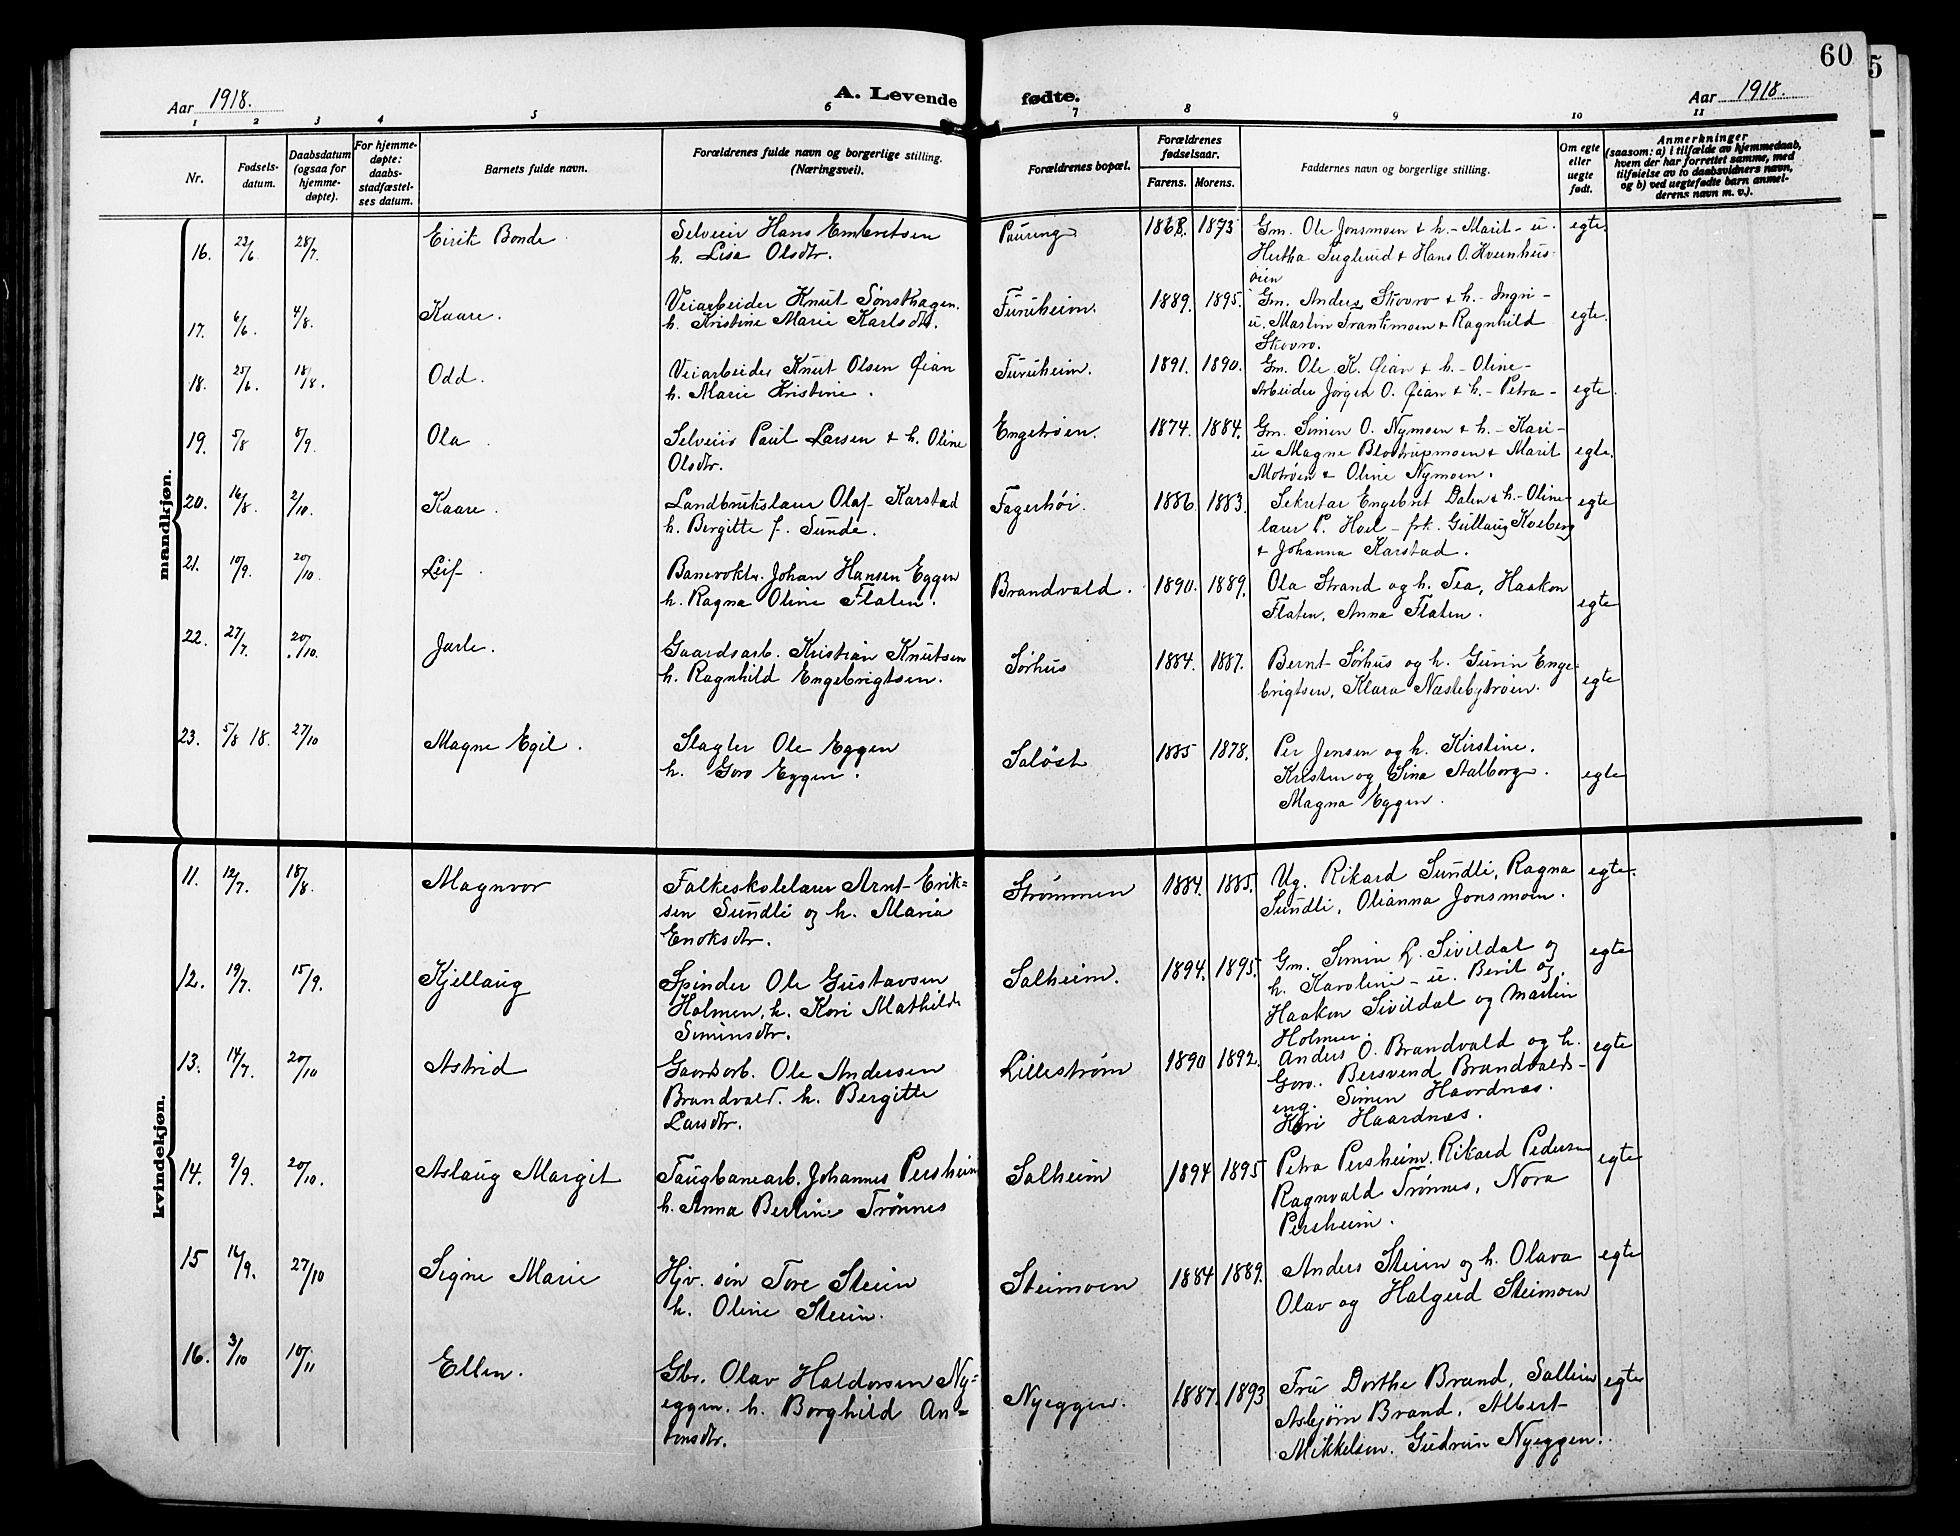 60
5
Aar 1918.
A. Levende fødte.
Aar 1918.
1 2 3 4 5 6 7 8 9 10 11
Nr.
Fødsels-
datum.
Daabsdatum
(ogsaa for
hjemme-
døpte).
For hjemme-
døpte:
daabs-
stadfæstel-
ses datum.
Barnets fulde navn.
Forældrenes fulde navn og borgerlige stilling.
(Næringsvei).
Forældrenes bopæl.
Forældrenes
fødselsaar.
Farens. Morens.
Faddernes navn og borgerlige stilling.
Om egte
eller
uegte
født.
Anmerkninger
(saasom: a) i tilfælde av hjemmedaab,
hvem der har forrettet samme, med
tilføielse av to daabsvidners navn,
og b) ved uegtefødte barn anmel-
derens navn m. v.).
mandkjøn.
16. 23/6 28/7. Eirik Bonde. Selveier Hans Embretsen
h. Lisa Olsdtr.
1868. 1873 Gm. Ole Jonsmoen & h. - Marit - u.
Hertha & Hans O. Kvernhus-
øien egte.
17. 6/6. 4/8. Kaare. Veiarbeider Knut Sønsthagen.
h. Kristine Marie Karlsdtr.
Furuheim. 1889. 1895. Gm. Anders Skovro & h. - Ingri -
u. Martin & Ragnhild
Skovro. egte.
18. 25/6. 18/8. Odd. Veiarbeider Knut Olsen Øian
h. Marie Kristine.
Furuheim. 1891. 1890. Gm. Ole K. Øian & h. - Oline -
Arbeider Jørgen O. Øian & h. - Petra - egte.
19. 5/8 8/9. Ola. Selveier Paul Larsen & h. Oline
Olsdtr.
Engetrøen. 1874. 1884. Gm. Simen O. Nymoen & h. - Kari -
u Magne Blostrupmoen & Marit
Motrøen & Oline Nymoen. egte.
20. 16/8. 2/10. Kaare. Landbrukslærer Olaf Karstad
h. Bergitte f. Sunde.
Fagerhøi. 1886 1883. Sekretær Engebret Dalen & h. - Oline -
lærer P. Hoel - frk. Gullaug Koeberg
& Johanna Karstad. egte
21. 10/9. 20/10. Leif. Banevokter Johan Hansen Eggen
h. Ragna Oline Flaten.
Brandvald. 1890. 1889. Ola Strand og h. Tea, Haakon
Flaten, Anna Flaten. egte
22. 27/7. 20/10. Jarle. Gaardsarb. Kristian Knutsen
h. Ragnhild Engebrigtsen.
Sørhus 1884. 1887. Bernt Sørhus og h. Gurin Enge-
brigtsen, Klara Næstebytrøen. egte
23. 5/8 18. 27/10 Magne Egil. Slagter Ole Eggen
h. Goro Eggen.
Saløst 1885 1878. Per Jensen og h. Kirstine.
Kristen og Sina Aalborg.
Magna Eggen. egte
kvindekjøn.
11. 12/7. 18/8. Magnvor Folkeskolelærer Arnt Erik=
sen Sundli og h. Maria
Enoksdtr.
Strømmen 1884. 1885. Ug. Rikard Sundli, Ragna
Sundli, Olianna Jonsmoen. egte.
12. 19/7. 15/9. Kjellaug Spinder Ole Gustavsen
Holmen, h. Kari Mathilde
Simensdtr.
Solheim. 1894. 1895. Gm. Simen L. Sivildal og
h. Karoline - u. Berit og
Haakon Sivildal og Martin
Holmen. egte
13. 14/7. 20/10 Astrid Gaardsarb. Ole Andersen
Brandvald. h. Bergitte
Larsdtr.
Lillestrøm 1890 1892. Anders O. Brandvald og h.
Goro. Bersvend Brandvalds-
eng. Simen Haardnæs.
Kari Haardnæs. egte
14. 9/9. 20/10. Aslaug Margit Taugbanearb. Johannes Persheim
h. Anna Berline Trønnes
Solheim 1894 1895 Petra Persheim. Rikard Pedersen
Ragnvald Trønnes, Nora
Persheim. egte
15 14/9. 27/10 Signe Marie Hjv. søn Tore Steien
h. Oline Steien.
Steimoen 1884 1889. Anders Steien og h. Olava
Olav og Halgerd Steimoen egte
16. 3/10 10/11 Ellen. Gbr. Olav Haldorsen Ny=
eggen. h. Borghild An=
tonsdtr.
Nyeggen. 1887. 1893 Fru Dorthe Brand,
Asbjørn Brand. Albert
Mikkelsen. Gudrun Nyeggen. egte